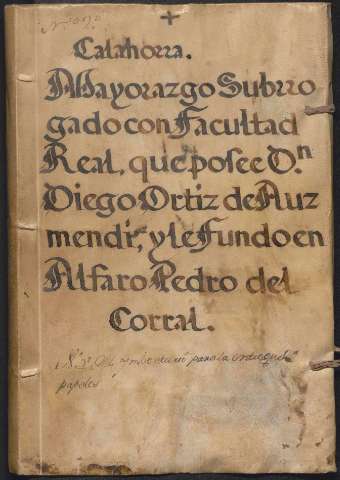 +
Calahorra.
Mayorazgo Subrro
gado con Facultad
Real, que posee D.n
Diego Ortiz de Auz
mendi, y le Fundo en
Alfaro Pedro del
Corral.
papeles